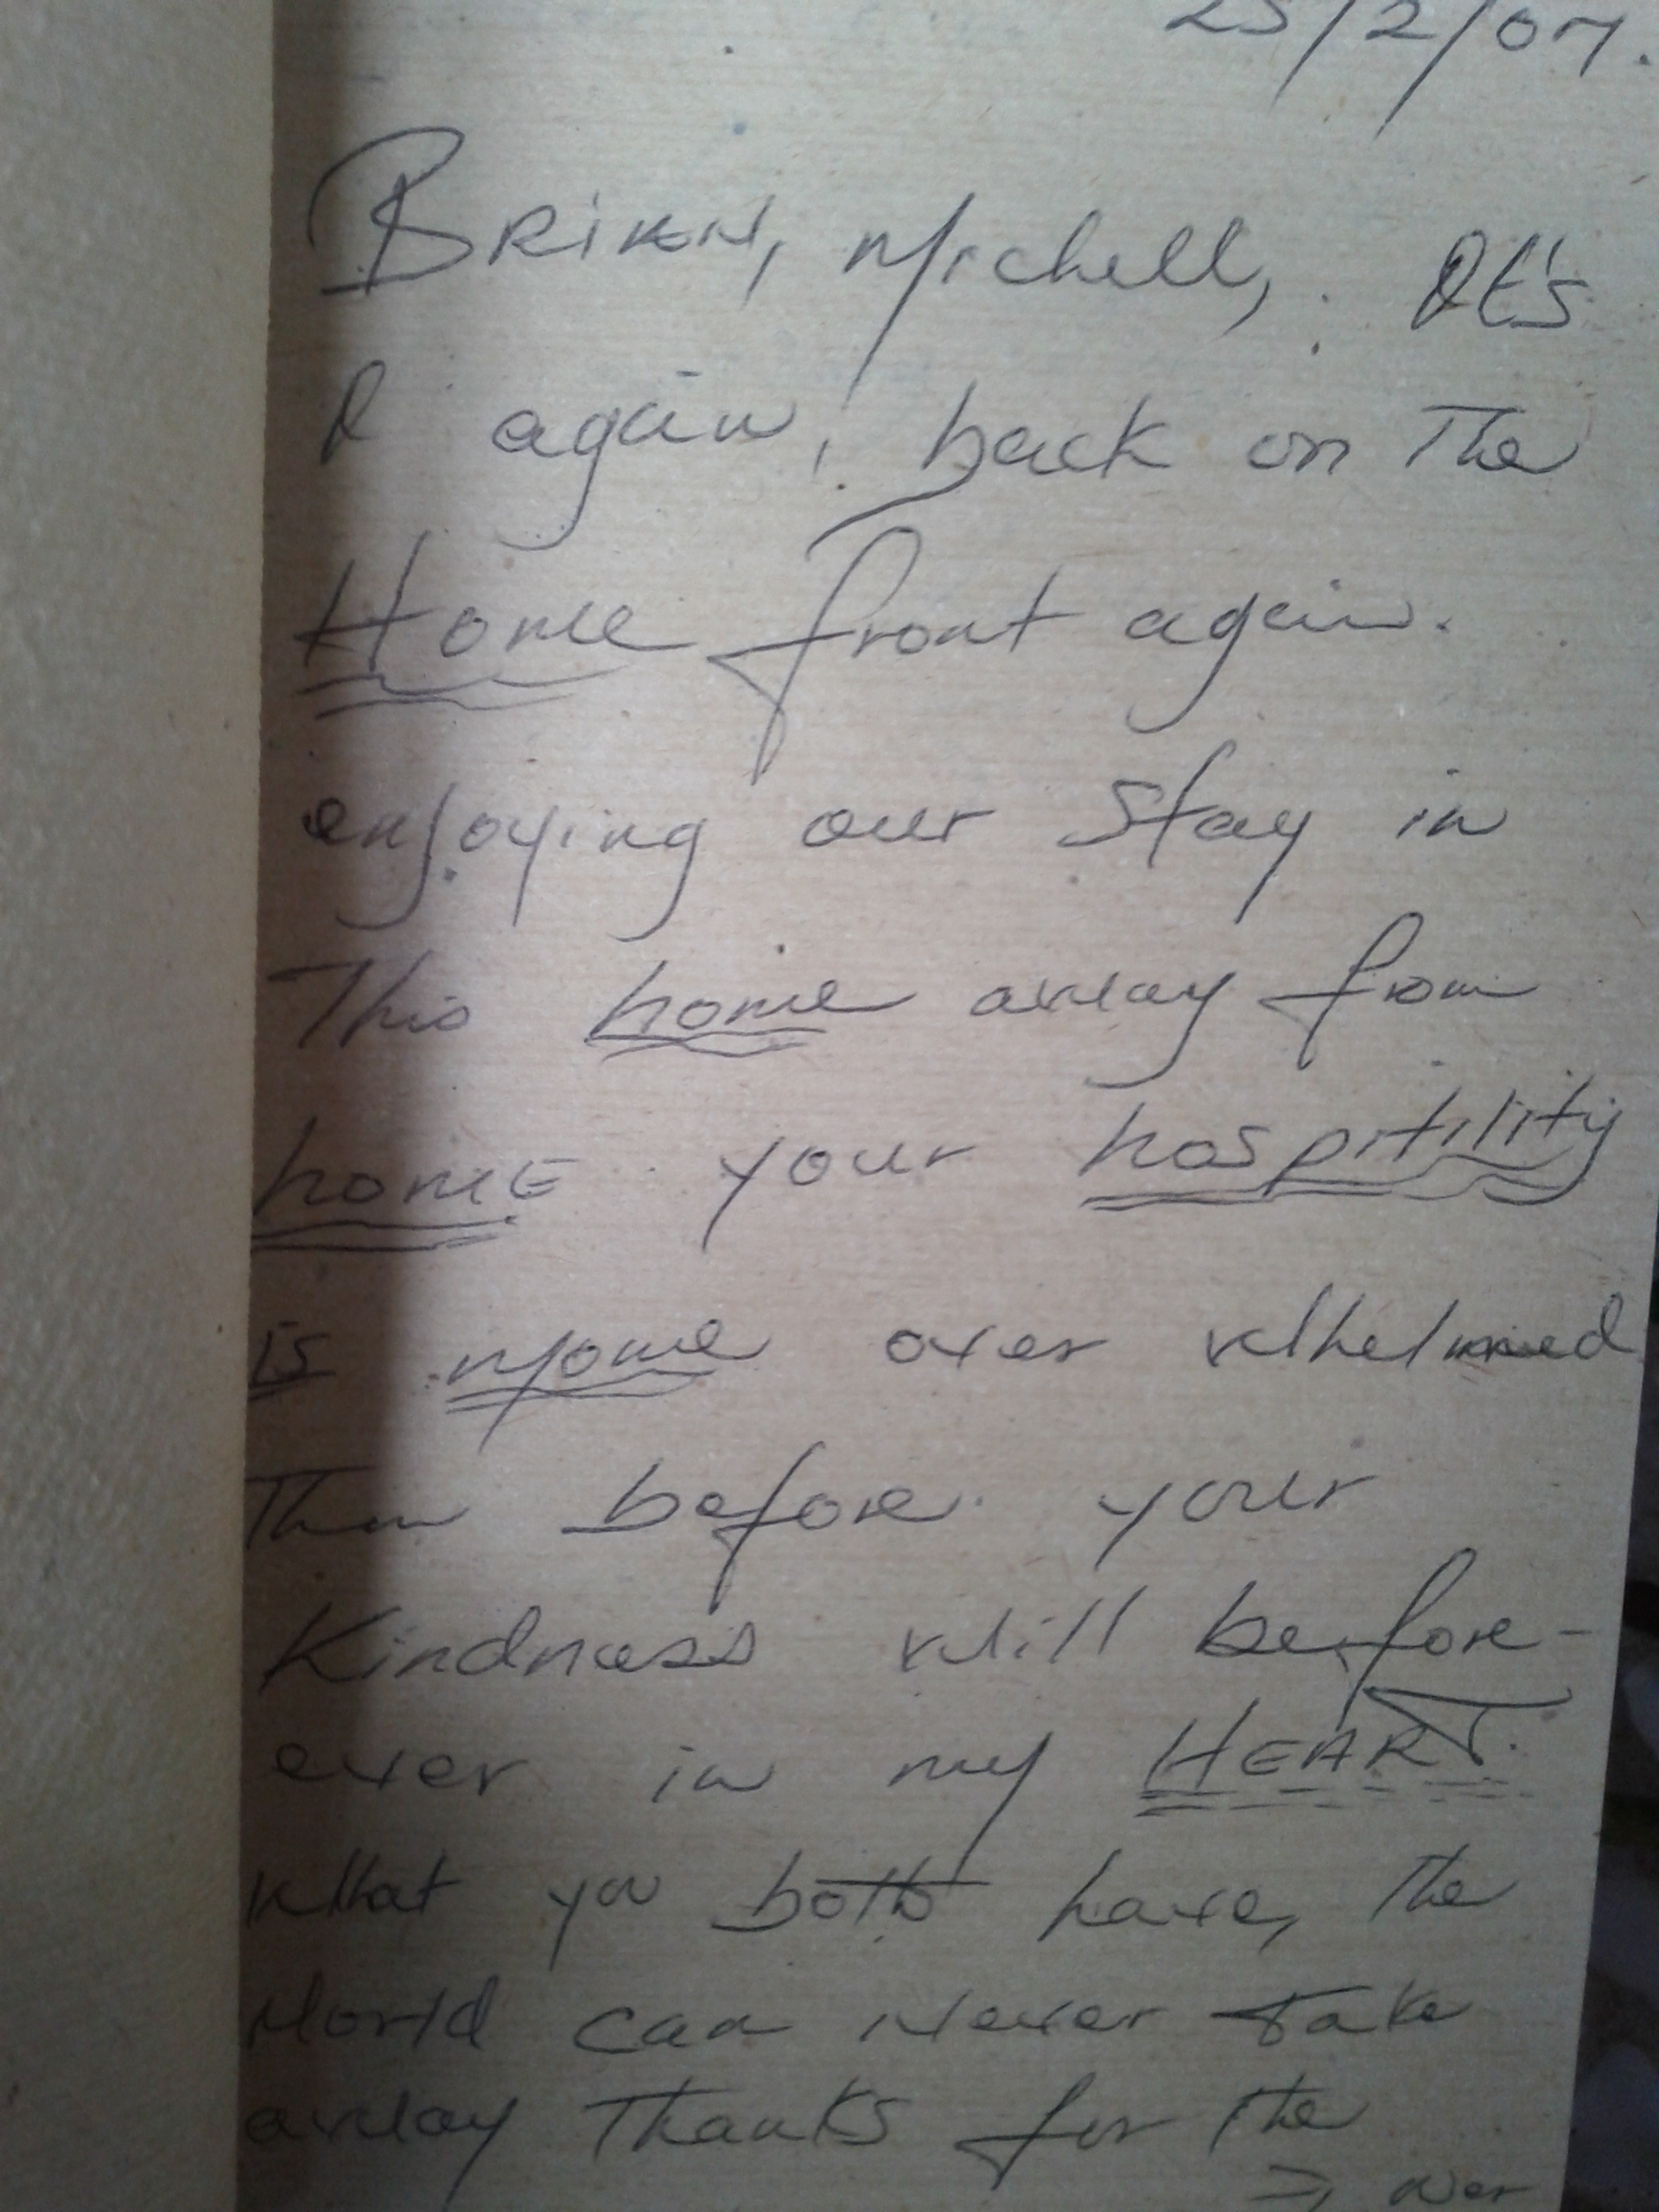 25/2/07.
BRIAN, Michell, It's
I again, back on The
Home front again.
enjoying our Stay in
This home away from
homE your hospitility
is more over whelmed
Then before your
Kindness will be fore-
ever in my HEART.
What you both have, The
World can never take
away Thanks for the
⇒ over